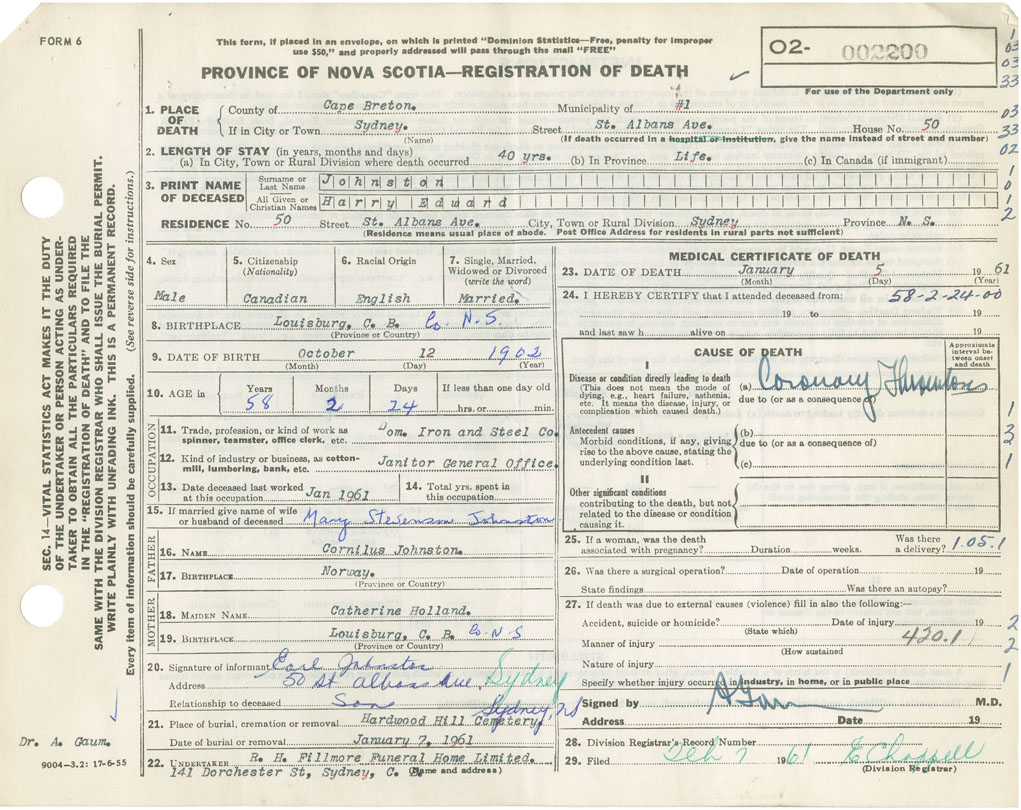 FORM 6
This form, if placed in an envelope, on which is printed "Dominion Statistics—Free, penalty for improper
use $50," and properly addressed will pass through the mail "FREE"
02- 002200
PROVINCE OF NOVA SCOTIA—REGISTRATION OF DEATH
For use of the Department only
1. PLACE OF DEATH
County of Cape Breton. Municipality of #1
If in City or Town Sydney. Street St. Albans Ave. House No. 50
(Name) (If death occurred in a hospital or institution, give the name instead of street and number)
2. LENGTH OF STAY (in years, months and days)
(a) In City, Town or Rural Division where death occurred 40 yrs. (b) In Province Life. (c) In Canada (if immigrant)
3. PRINT NAME OF DECEASED
Surname or Last Name Johnston
All Given or Christian Names Harry Edward
RESIDENCE No. 50 Street St. Albans Ave. City, Town or Rural Division Sydney Province N. S.
(Residence means usual place of abode. Post Office Address for residents in rural parts not sufficient)
4. Sex Male
5. Citizenship (Nationality) Canadian
6. Racial Origin English
7. Single, Married, Widowed or Divorced (write the word) Married.
8. BIRTHPLACE Louisburg, C. B. Co. N. S.
(Province or Country)
9. DATE OF BIRTH October 12 1902
(Month) (Day) (Year)
10. AGE in Years 58 Months 2 Days 24 If less than one day old hrs. or min.
OCCUPATION
11. Trade, profession, or kind of work as spinner, teamster, office clerk, etc. Dom. Iron and Steel Co.
12. Kind of industry or business, as cotton-mill, lumbering, bank, etc. Janitor General Office.
13. Date deceased last worked at this occupation Jan 1961
14. Total yrs. spent in this occupation
15. If married give name of wife or husband of deceased Mary Stevenson Johnston
FATHER
16. NAME Cornilus Johnston.
17. BIRTHPLACE Norway.
(Province or Country)
MOTHER
18. MAIDEN NAME Catherine Holland.
19. BIRTHPLACE Louisburg, C. B. Co. N. S
(Province or Country)
20. Signature of informant Earl Johnston
Address 50 St Albans Ave, Sydney
Relationship to deceased Son Sydney, NS
21. Place of burial, cremation or removal Hardwood Hill Cemetery.
Date of burial or removal January 7, 1961
22. UNDERTAKER R. H. Fillmore Funeral Home Limited.
141 Dorchester St, Sydney, C. B.
(Name and address)
MEDICAL CERTIFICATE OF DEATH
23. DATE OF DEATH January 5 1961
(Month) (Day) (Year)
24. I HEREBY CERTIFY that I attended deceased from: 58-2-24-00
19 to 19
and last saw h alive on 19
CAUSE OF DEATH
Approximate interval between onset and death
I
Disease or condition directly leading to death (a) Coronary Thrombosis
(This does not mean the mode of dying, e.g., heart failure, asthenia, etc. It means the disease, injury, or complication which caused death.)
due to (or as a consequence of)
Antecedent causes
Morbid conditions, if any, giving rise to the above cause, stating the underlying condition last.
(b)
due to (or as a consequence of)
(c)
II
Other significant conditions
contributing to the death, but not related to the disease or condition causing it.
25. If a woman, was the death associated with pregnancy? Duration weeks. Was there a delivery? 1.05.1
26. Was there a surgical operation? Date of operation 19
State findings Was there an autopsy?
27. If death was due to external causes (violence) fill in also the following:—
Accident, suicide or homicide? Date of injury 19
(State which)
Manner of injury 420.1
(How sustained)
Nature of injury
Specify whether injury occurred in industry, in home, or in public place
Signed by M.D.
Address Date 19
28. Division Registrar's Record Number
29. Filed Feb 7 1961 E Chappell
(Division Registrar)
SEC. 14—VITAL STATISTICS ACT MAKES IT THE DUTY
OF THE UNDERTAKER OR PERSON ACTING AS UNDER-
TAKER TO OBTAIN ALL THE PARTICULARS REQUIRED
IN THE "REGISTRATION OF DEATH" AND TO FILE THE
SAME WITH THE DIVISION REGISTRAR WHO SHALL ISSUE THE BURIAL PERMIT.
WRITE PLAINLY WITH UNFADING INK. THIS IS A PERMANENT RECORD.
Every item of information should be carefully supplied. (See reverse side for instructions.)
Dr. A. Gaum.
9004—3.2: 17-6-55